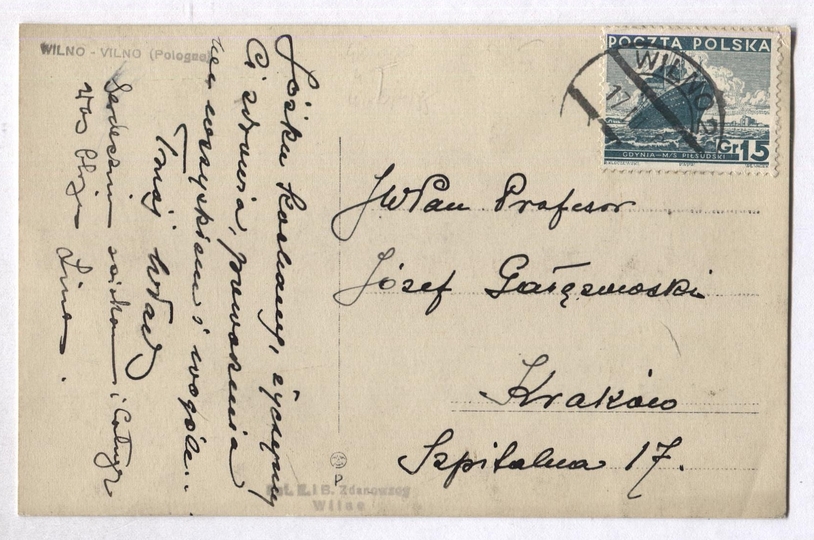 WILNO - VILNO (Pologne)
Józku kochany, życzymy
Ci zdrowia, powodzenia
we wszystkiem i wogóle..
Twój Wład
Serdecznie ściskam i całuję
Was Oboje
POCZTA POLSKA
WILNO 2
17
Gr. 15
GDYNIA - M/S PIŁSUDSKI
JWPan Profesor
Józef Gałęzowski
Kraków
Szpitalna 17.
P
Fot. E. i B. Zdanowscy
Wilno